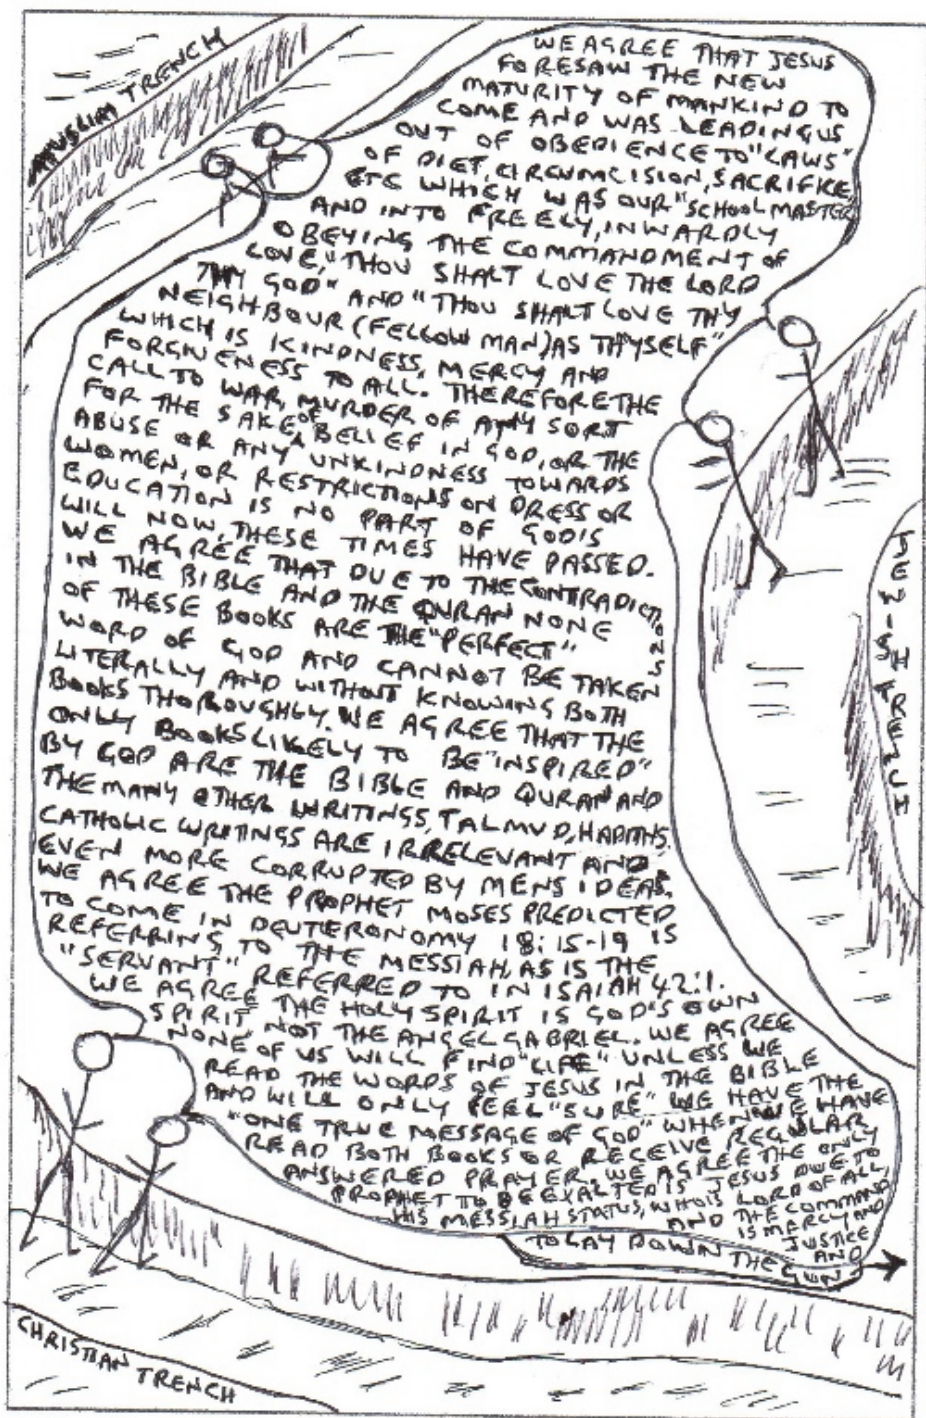 MUSLIM TRENCH
WE AGREE THAT JESUS
FORESAW THE NEW
MATURITY OF MANKIND TO
COME AND WAS LEADING US
OUT OF OBEDIENCE TO "LAWS"
OF DIET, CIRCUMCISION, SACRIFICE,
ETC WHICH WAS OUR "SCHOOLMASTER"
AND INTO FREELY, INWARDLY
OBEYING THE COMMANDMENT OF
LOVE, "THOU SHALT LOVE THE LORD
THY GOD" AND "THOU SHALT LOVE THY
NEIGHBOUR (FELLOW MAN) AS THYSELF"
WHICH IS KINDNESS, MERCY AND
FORGIVENESS TO ALL. THEREFORE THE
CALL TO WAR, MURDER OF ANY SORT
FOR THE SAKE OF BELIEF IN GOD, OR THE
ABUSE OR ANY UNKINDNESS TOWARDS
WOMEN, OR RESTRICTIONS ON DRESS OR
EDUCATION IS NO PART OF GOD'S
WILL NOW, THESE TIMES HAVE PASSED.
WE AGREE THAT DUE TO THE CONTRADICTIONS
IN THE BIBLE AND THE QURAN NONE
OF THESE BOOKS ARE THE "PERFECT"
WORD OF GOD AND CANNOT BE TAKEN
LITERALLY AND WITHOUT KNOWING BOTH
BOOKS THOROUGHLY. WE AGREE THAT THE
ONLY BOOKS LIKELY TO BE "INSPIRED"
BY GOD ARE THE BIBLE AND QURAN AND
THE MANY OTHER WRITINGS, TALMUD, HADITHS,
CATHOLIC WRITINGS ARE IRRELEVANT AND
EVEN MORE CORRUPTED BY MENS IDEAS.
WE AGREE THE PROPHET MOSES PREDICTED
TO COME IN DEUTERONOMY 18:15-19 IS
REFERRING TO THE MESSIAH, AS IS THE
"SERVANT" REFERRED TO IN ISAIAH 42:1.
WE AGREE THE HOLY SPIRIT IS GOD'S OWN
SPIRIT NOT THE ANGEL GABRIEL. WE AGREE
NONE OF US WILL FIND "LIFE" UNLESS WE
READ THE WORDS OF JESUS IN THE BIBLE
AND WILL ONLY FEEL "SURE" WE HAVE THE
"ONE TRUE MESSAGE OF GOD" WHEN WE HAVE
READ BOTH BOOKS OR RECEIVE REGULAR
ANSWERED PRAYER. WE AGREE THE ONLY
PROPHET TO BE EXALTED IS JESUS DUE TO
HIS MESSIAH STATUS, WHO IS LORD OF ALL,
AND THE COMMAND
IS MERCY AND
JUSTICE
AND
TO LAY DOWN THE GUN
JEWISH TRENCH
CHRISTIAN TRENCH